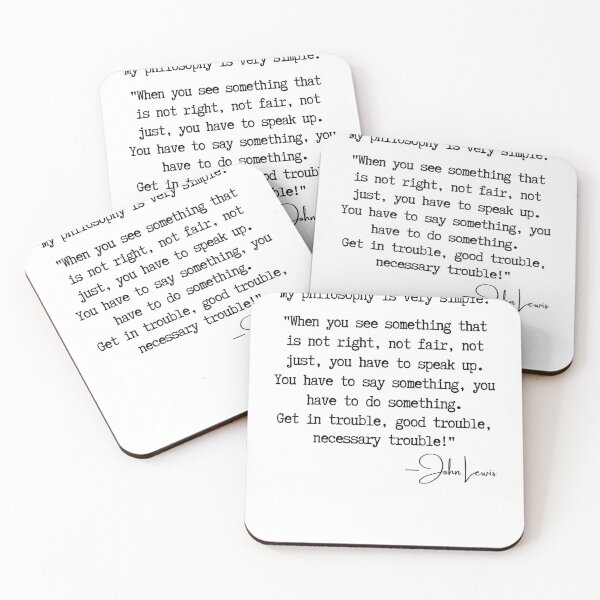 My philosophy is very simple.
"When you see something that
is not right, not fair, not
just, you have to speak up.
You have to say something, you
have to do something.
Get in good trouble
John
My philosophy is very simple.
"When you see something that
is not right, not fair, not
just, you have to speak up.
You have to say something, you
have to do something.
Get in trouble, good trouble,
necessary trouble!"
John Lewis
My philosophy is very simple.
"When you see something that
is not right, not fair, not
just, you have to speak up.
You have to say something, you
have to do something.
Get in trouble, good trouble,
necessary trouble!"
My philosophy is very simple.
"When you see something that
is not right, not fair, not
just, you have to speak up.
You have to say something, you
have to do something.
Get in trouble, good trouble,
necessary trouble!"
—John Lewis